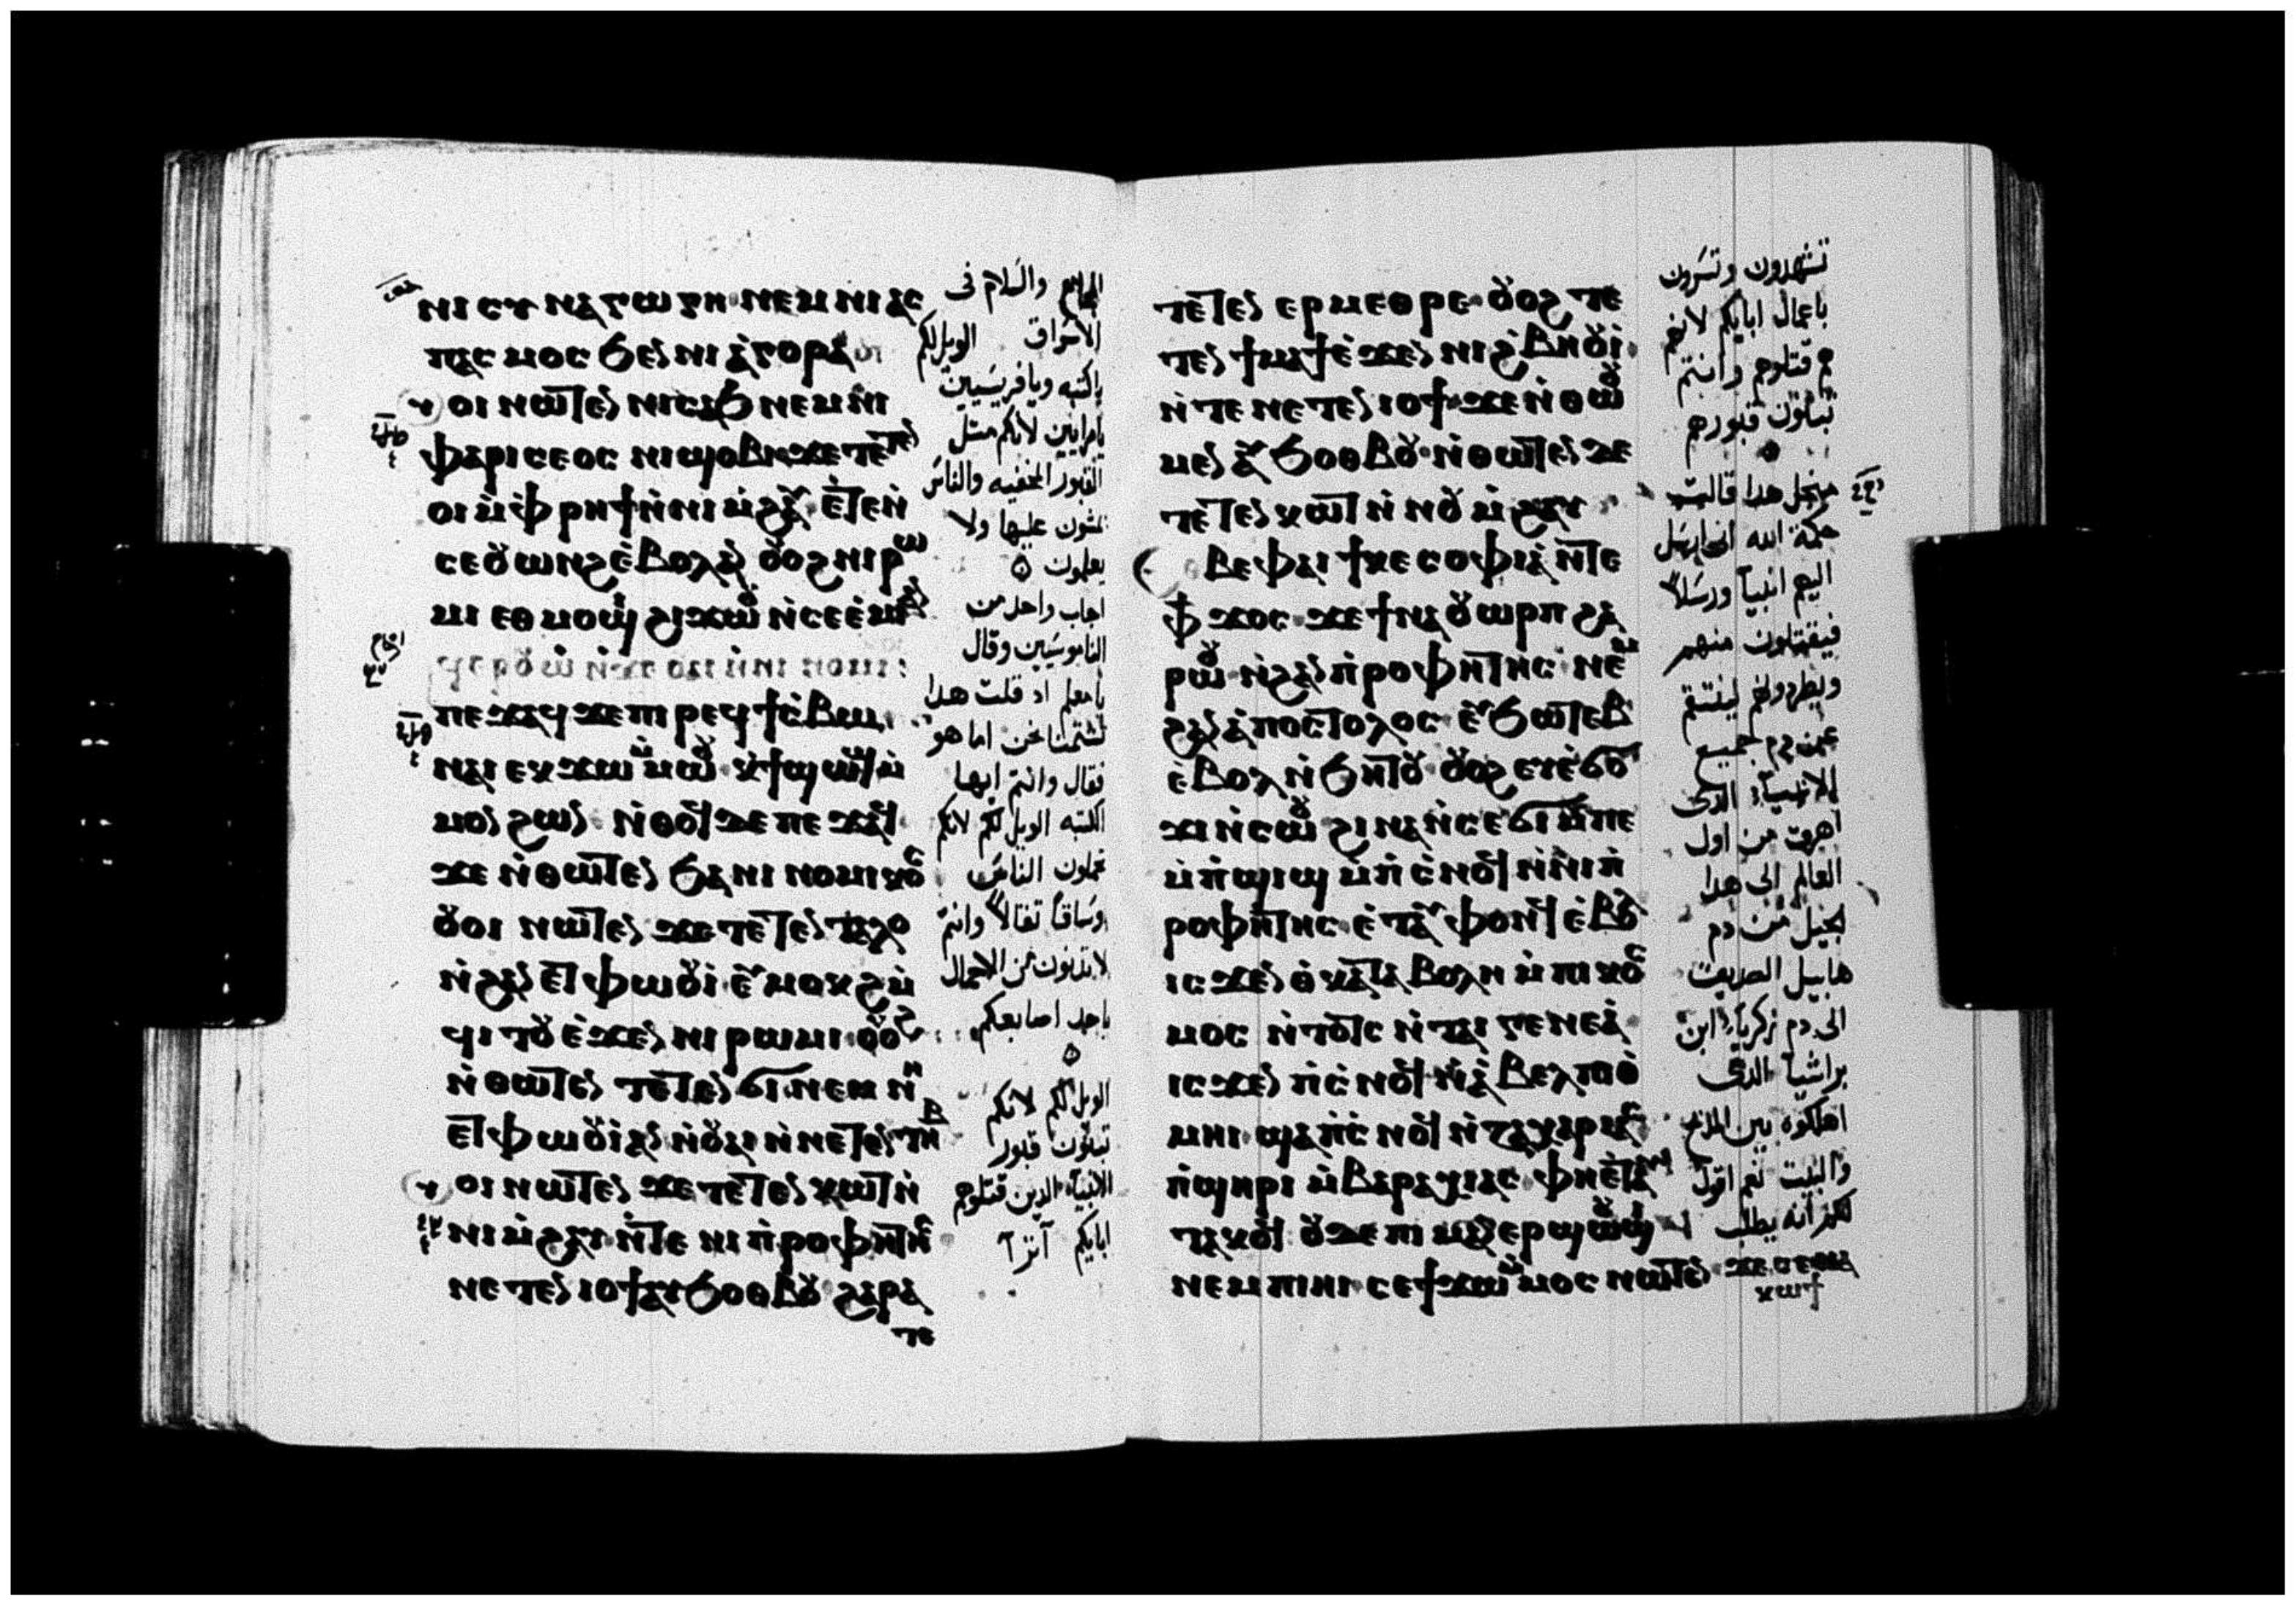 ⲛⲓⲥⲩⲛⲁⲅⲱⲅⲏ ⲛⲉⲙ ⲛⲓⲁⲥ
ⲡⲁⲥⲙⲟⲥ ϧⲉⲛ ⲛⲓⲁ̀ⲅⲟⲣⲁ
ⲟⲓ ⲛⲱⲧⲉⲛ ⲛⲓⲥⲁϧ ⲛⲉⲙ ⲛⲓ
ⲫⲁⲣⲓⲥⲉⲟⲥ ⲛⲓϣⲟⲃⲓ ϫⲉ ⲧⲉⲧⲉⲛ
ⲟⲓ ⲙ̀ⲫⲣⲏϯ ⲛ̀ⲛⲓⲙ̀ϩⲁⲩ ⲉ̀ⲧⲉⲛ̀
ⲥⲉⲟⲩⲱⲛϩ ⲉ̀ⲃⲟⲗ ⲁⲛ ⲟⲩⲟϩ ⲛⲓⲣⲱ
ⲙⲓ ⲉⲑⲙⲟϣⲓ ϩⲓϫⲱⲟⲩ ⲛ̀ⲥⲉⲉ̀ⲙⲓ ⲁⲛ
ⲡⲉϫⲁϥ ϫⲉ ⲡⲓⲣⲉϥϯⲥ̀ⲃⲱ
ⲛⲁⲓ ⲉⲕϫⲱ ⲙ̀ⲙⲱⲟⲩ ⲕϯϣⲱϣ ⲙ̀
ⲙⲟⲛ ϩⲱⲛ ⲛ̀ⲑⲟϥ ⲇⲉ ⲡⲉϫⲁϥ
ϫⲉ ⲛ̀ⲑⲱⲧⲉⲛ ϧⲁ ⲛⲓⲛⲟⲙⲓⲕⲟⲥ
ⲟⲩⲟⲓ ⲛⲱⲧⲉⲛ ϫⲉ ⲧⲉⲧⲉⲛⲧⲁⲗⲟ
ⲛ̀ϩⲁⲛⲉⲧⲫⲱⲟⲩⲓ ⲉⲩⲙⲟⲕϩ ⲙ̀
ϥⲓⲧⲟⲩ ⲉ̀ϫⲉⲛ ⲛⲓⲣⲱⲙⲓ ⲟⲩⲟϩ
ⲛ̀ⲑⲱⲧⲉⲛ ⲧⲉⲧⲉⲛϭⲓ ⲛⲉⲙ ⲛⲓ
ⲉⲧⲫⲱⲟⲩⲓ ⲁⲛ ⲛ̀ⲟⲩⲁⲓ ⲛ̀ⲛⲉⲧⲉⲛⲧⲏⲃ
ⲟⲓ ⲛⲱⲧⲉⲛ ϫⲉ ⲧⲉⲧⲉⲛⲕⲱⲧ ⲛ̀
ⲛⲓⲙ̀ϩⲁⲩ ⲛ̀ⲧⲉ ⲛⲓⲡ̀ⲣⲟⲫⲏⲧⲏⲥ
ⲛⲉⲧⲉⲛⲓⲟϯ ⲁⲩϧⲟⲑⲃⲟⲩ ϩⲁⲣⲁ
ⲧⲉ
المجامع والسلام فى
الاسواق الويل لكم
ياكتبه ويافريسيين
يامرايين لانكم مثل
القبور المخفيه والناس
يمشون عليها ولا
يعلمون
اجاب واحد من
الناموسيين وقال
يامعلم اد قلت هدا
تشتمنا نحن اما هو
فقال وانتم ايها
الكتبه الويل لكم لانكم
تحملون الناس
وساقا ثقالا وانتم
لا تدنون من الاحمال
باحد اصابعكم
الويل لكم لانكم
تبنون قبور
الانبيا الدين قتلوهم
ابايكم
ⲧⲉⲧⲉⲛⲉⲣⲙⲉⲑⲣⲉ ⲟⲩⲟϩ ⲧⲉ
ⲧⲉⲛϯⲙⲁϯ ⲉ̀ϫⲉⲛ ⲛⲓϩ̀ⲃⲏⲟⲩⲓ
ⲛ̀ⲧⲉ ⲛⲉⲧⲉⲛⲓⲟϯ ϫⲉ ⲛ̀ⲑⲱⲟⲩ
ⲙⲉⲛ ⲁⲩϧⲟⲑⲃⲟⲩ ⲛ̀ⲑⲱⲧⲉⲛ ⲇⲉ
ⲧⲉⲧⲉⲛⲕⲱⲧ ⲛ̀ⲛⲟⲩⲙ̀ϩⲁⲩ
ⲃⲉ ⲫⲁⲓ ϯⲕⲉⲥⲟⲫⲓⲁ ⲛ̀ⲧⲉ
ⲫϯ ϫⲟⲥ ϫⲉ ϯⲛⲁⲟⲩⲱⲣⲡ ϩⲁ
ⲣⲱⲟⲩ ⲛ̀ϩⲁⲛⲡ̀ⲣⲟⲫⲏⲧⲏⲥ ⲛⲉⲙ
ϩⲁⲛⲁ̀ⲡⲟⲥⲧⲟⲗⲟⲥ ⲉⲩϧⲱⲧⲉⲃ
ⲉ̀ⲃⲟⲗ ⲛ̀ϧⲏⲧⲟⲩ ⲟⲩⲟϩ ⲉⲩⲉ̀ϭⲟ
ϫⲓ ⲛ̀ⲥⲱⲟⲩ ϩⲓⲛⲁ ⲛ̀ⲥⲉϭⲓ ⲙ̀ⲡⲉ
ⲙ̀ⲡ̀ϣⲓϣ ⲙ̀ⲡ̀ⲥ̀ⲛⲟϥ ⲛ̀ⲛⲓⲡ̀
ⲣⲟⲫⲏⲧⲏⲥ ⲉ̀ⲧⲁⲩⲫⲟⲛϥ ⲉ̀ⲃⲟⲗ
ⲓⲥϫⲉⲛ ⲑ̀ⲕⲁⲧⲁⲃⲟⲗⲏ ⲙ̀ⲡⲓⲕⲟⲥ
ⲙⲟⲥ ⲛ̀ⲧⲟⲧⲥ ⲛ̀ⲧⲁⲓⲅⲉⲛⲉⲁ̀
ⲓⲥϫⲉⲛ ⲡ̀ⲥ̀ⲛⲟϥ ⲛ̀ⲁ̀ⲃⲉⲗ ⲡⲓⲑ̀
ⲙⲏⲓ ϣⲁ ⲡ̀ⲥ̀ⲛⲟϥ ⲛ̀ⲍⲁⲭⲁⲣⲓⲁⲥ
ⲡ̀ϣⲏⲣⲓ ⲙ̀ⲃⲁⲣⲁⲭⲓⲁⲥ ⲫⲏⲉ̀ⲧⲁⲩ
ⲧⲁⲕⲟϥ ⲟⲩⲇⲉ ⲡⲓⲙⲁⲛⲉⲣϣⲱⲟⲩϣⲓ
ⲛⲉⲙ ⲡⲓⲏⲓ ⲥⲉ ϯϫⲱ ⲙ̀ⲙⲟⲥ ⲛⲱⲧⲉⲛ ϫⲉ ⲥⲉⲛⲁ
ⲕⲱϯ
تشهدون وتسرون
باعمال ابايكم لانهم
هم قتلوهم وانتم
تبنون قبورهم
من اجل هدا قالت
حكمة الله انى ارسل
اليهم انبيا ورسلا
فيقتلون منهم
ويطردونهم لينتقم
عن دم جميع
الانبيا الدى
اهرق من اول
العالم الى هدا
الجيل من دم
هابيل الصديق
الى دم زكريا ابن
براشيا الدى
اهلكوه بين المدبح
والبيت نعم اقول
لكم انه يطلب